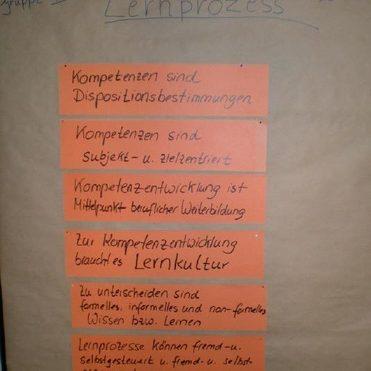 gruppe
Lernprozess
Kompetenzen sind
Dispositionsbestimmungen
Kompetenzen sind
Subjekt- u. zielzentriert
Kompetenzentwicklung ist
Mittelpunkt beruflicher Weiterbildung
Zur Kompetenzentwicklung
braucht es Lernkultur
Zu unterscheiden sind
formelles, informelles und non-formelles
Wissen bzw. Lernen
Lernprozesse können fremd- u.
selbstgesteuert u. fremd- u. selbst-